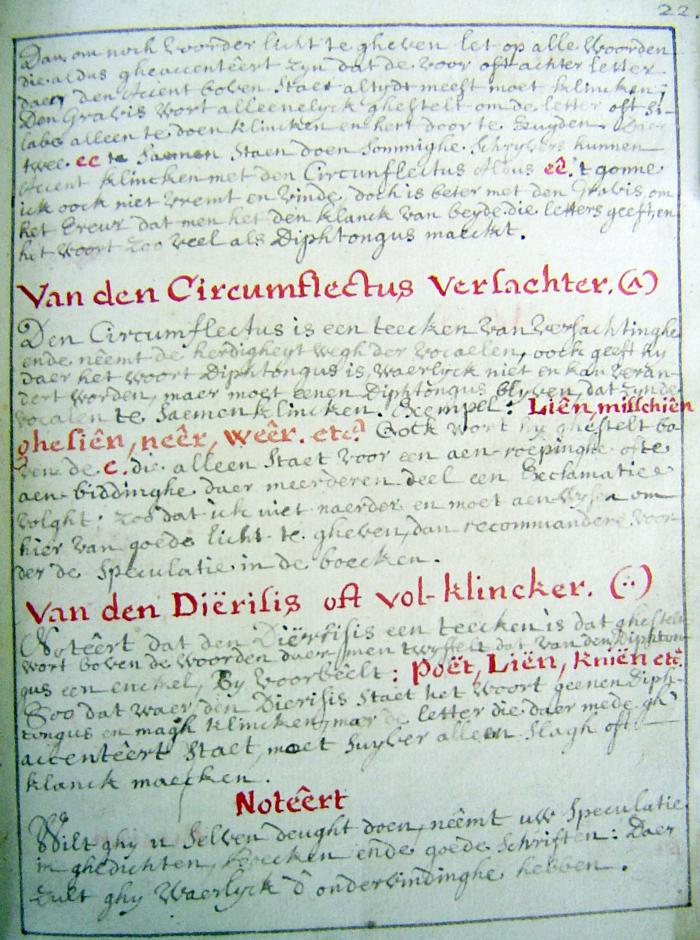 22.
Dan, om noch voorder licht te gheven let op alle woorden
die aldus gheaccentêert zyn dat de voor oft achter letter
daer den Accent boven Staet altydt meest moet klincken;
Den Gravis wort alleenelyck ghestelt om de letter oft Si-
labe alleen te doen klincken en hert door te Duyden. Dees
twee ee te Saemen Staen doen Sommighe Schryvers kunnen
Accent klincken met den Circunflectus Aldus eê. 't gonne
ick oock niet vremt en vinde, doch is beter met den Gravis, om
het Ereux dat men het den klanck van beyde die letters geeft, en
het woort Zoo veel als Diphtongus maeckt.
Van den Circumflectus Versachter. (^)
Den Circumflectus is een teecken van versachtinghe
ende nêemt de herdigheyt wegh der vocaelen, oock geeft hy
daer het woort Diphtongus is, waerlyck niet en kan veran-
dert worden, maer moet eenen Diphtongus blyven, dat zynde
vocalen te Saemen klincken. Exempel: Liên, misschiên
ghesiên, neêr, weêr. etc? Oock wort hy ghestelt bo-
ven de e. die alleen Staet voor een aen-roepinghe ofte
aen-biddinghe daer meerderen deel een Exclamatie
volght; zoo dat ick niet naerder en moet aenwysen om
hier van goede licht te gheven, dan recommandere voor-
der de Speculatie in de boecken.
Van den Diërisis oft vol-klincker. (··)
Notêert dat den Diërisis een teecken is dat ghestelt
wort boven de woorden daer men twyffelt dat van den Diphton-
gus een enckel, By voorbeêlt: Poët, Liën, kniën etc.
Soo dat waer den Dierisis Staet het woort geenen Diph-
tongus en magh klincken, maer de letter die daer mede gh'
accentêert Staet, moet Suyver alleen Slagh oft
klanck maecken.
Notêert
Wilt ghy u Selven deught doen, nêemt uw Speculatie
in ghedichten, boecken ende goede Schriften: Daer
Zult ghy Waerlyck d'ondervindinghe hebben.